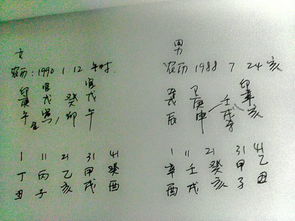 女
农历:1990 1 12 午时
庚 戊 癸 戊
午 寅 卯 午
1 11 21 31 41
丁 丙 乙 甲 癸
丑 子 亥 戌 酉
男
农历 1988 7 24 亥
戊 庚
辰 申
1 11 21 31 41
辛 壬 癸 甲 乙
酉 戌 亥 子 丑